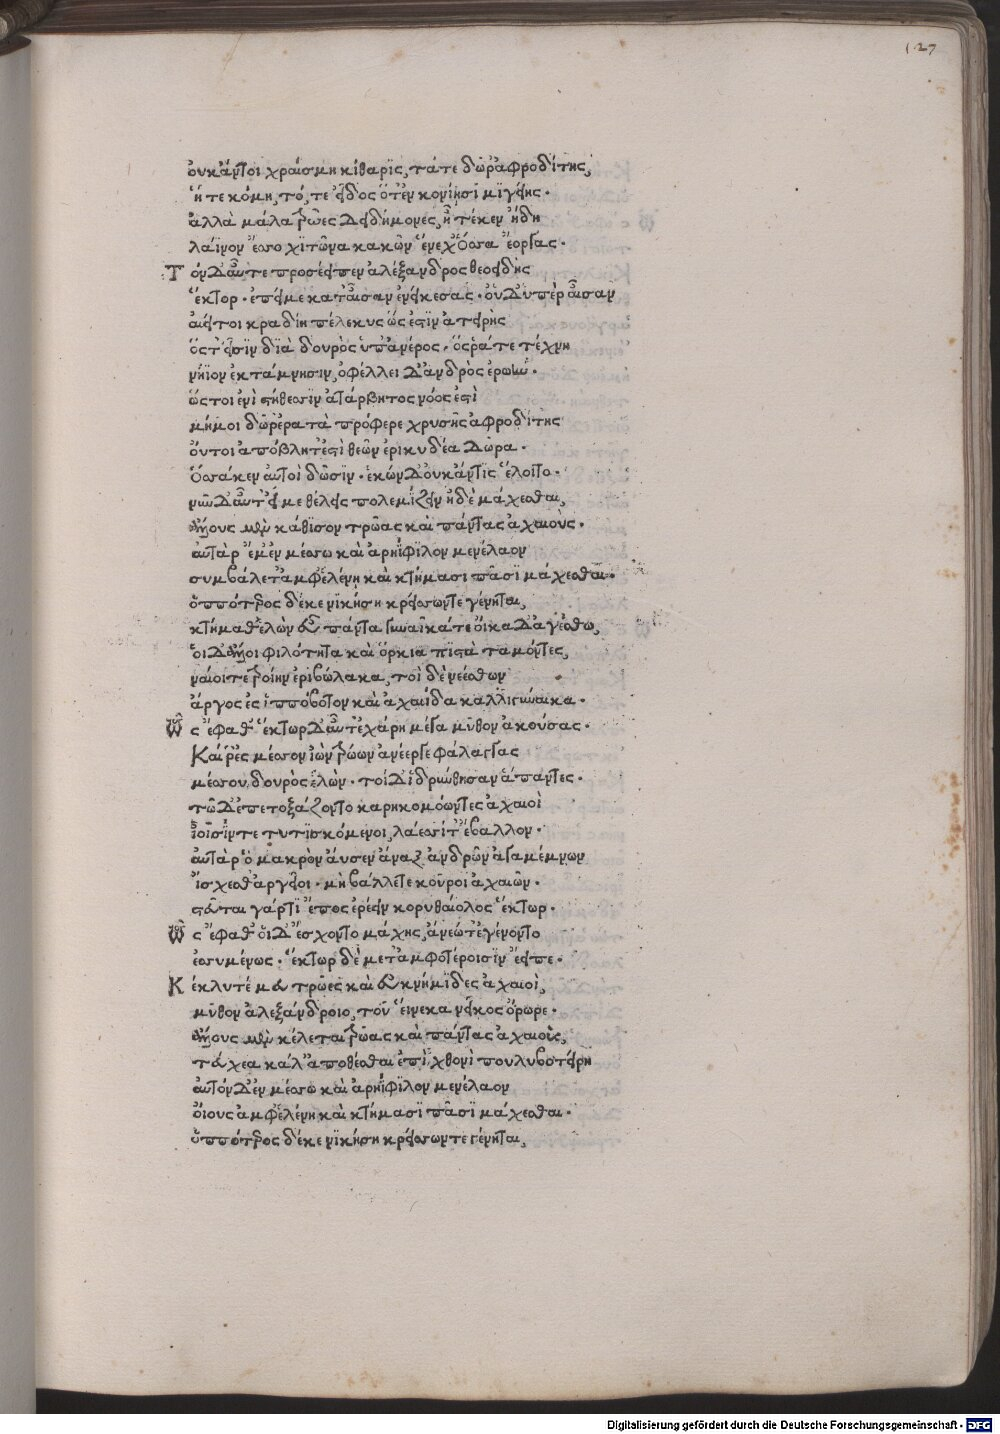 127
ὀυκἄντοι χράισμη κίθαρϊς, τάτε δῶρ' ἀφροδίτης,
ἥ τε κόμη, τό, τε εἶδος ὅτ' ἐν κονίησι μϊγείης.
ἀλλὰ μάλα τρῶες δειδήμονες, ἦ τέκεν ἤδη
λάϊνον ἕσσο χϊτῶνα κακῶν ἕνεχ' ὅσσα ἔοργας.
Τὸν δ' αὖτε προσέειπεν ἀλέξανδρος θεοειδὴς
ἕκτορ. ἐπεί με κατ' αἶσαν ἐνείκεσας. οὐδ' ὑπὲρ αἶσαν
αἰεί τοι κραδίη πέλεκυς ὥς ἐστϊν ἀτειρὴς
ὅς τ' εἶσϊν δϊὰ δουρὸς ὑπ' ἀνέρος, ὅς ῥά τε τέχνη
νήϊον ἐκτάμνησιν, ὀφέλλει δ' ἀνδρὸς ἐρωήν.
ὥς τοι ἐνὶ στήθεσσϊν ἀτάρβητος νόος ἐστὶ
μή μοι δῶρ' ἐρατὰ πρόφερε χρυσῆς ἀφροδίτης
ὄυτοι ἀπόβλητ' ἐστὶ θεῶν ἐρικυδέα δῶρα.
ὅσσά κεν αὐτοὶ δῶσϊν. ἑκὼν δ' ὀυκ ἄντϊς ἕλοιτο.
νῦν δ' αὖτ' εἴ με θέλεις πολεμίζειν ἠδὲ μάχεσθαι,
ἄλλους μὲν κάθϊσον τρῶας καὶ πάντας ἀχαιοὺς.
αὐτὰρ ἔμ' ἐν μέσσω καὶ ἀρηΐφϊλον μενέλαον
συμβάλετ' ἀμφ' ἑλένη καὶ κτήμασι πᾶσϊ μάχεσθαι.
ὁππότερος δέ κε νϊκήση κρείσσων τε γένηται,
κτήμαθ' ἑλὼν εὖ πάντα γυναῖκά τε ὄικαδ' ἀγέσθω,
ὁι δ' ἄλλοι φιλότητα καὶ ὅρκια πϊστὰ ταμόντες,
νάιοιτε τροίην ἐριβώλακα, τοὶ δὲ νεέσθων
ἄργος ἐς ἱππόβοτον καὶ ἀχαιίδα καλλιγύναικα.
Ὣς ἔφαθ' ἕκτωρ δ' αὖτ' ἐχάρη μέγα μῦθον ἀκούσας.
Καί ῥ' ἐς μέσσον ἰὼν τρώων ἀνέεργε φάλαγγας
μέσσου δουρὸς ἑλὼν. τοὶ δ' ἱδρύνθησαν ἅπαντες.
τῶ δ' ἐπετοξάζοντο καρηκομόωντες ἀχαιοὶ
ἰοῖσίν τε τυτϊσκόμενοι, λάεσσί τ' ἔβαλλον.
αὐτὰρ ὁ μακρὸν ἄυσεν ἄναξ ἀνδρῶν ἀγαμέμνων
ἴσχεσθ' ἀργεῖοι. μὴ βάλλετε κοῦροι ἀχαιῶν.
στεῦται γάρ τϊ ἔπος ἐρέειν κορυθάιολος ἕκτωρ.
Ὣς ἔφαθ' ὅι δ' ἔσχοντο μάχης, ἄνεώ τ' ἐγένοντο
ἐσσυμένως. ἕκτωρ δὲ μετ' ἀμφοτέροισϊν ἔειπε.
Κέκλυτέ μευ τρῶες καὶ ἐυκνήμϊδες ἀχαιοὶ,
μῦθον ἀλεξάνδροιο, τοῦ ἕινεκα νεῖκος ὄρωρε.
ἄλλους μὲν κέλεται τρῶας καὶ πάντας ἀχαιοὺς,
τεύχεα κάλ' ἀποθέσθαι ἐπὶ χθονὶ πουλυβοτείρη
αὐτὸν δ' ἐν μέσσω καὶ ἀρηΐφϊλον μενέλαον
ὄιους ἀμφ' ἑλένη καὶ κτήμασϊ πᾶσϊ μάχεσθαι.
ὁππότερος δέ κε νϊκήση κρείσσων τε γένηται,
Digitalisierung gefördert durch die Deutsche Forschungsgemeinschaft - DFG